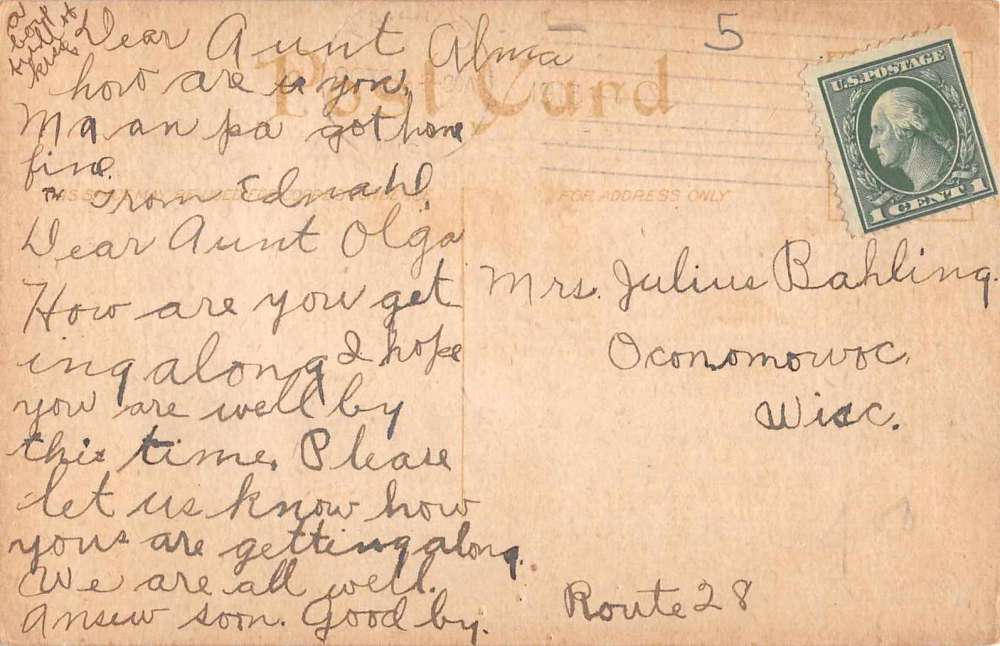 a
boy
Dear Aunt Alma
how are u you.
Ma an pa got home
fine.
From Edwahd,
Dear Aunt Olga
How are you get
ing along I hope
you are well by
this time. Please
let us know how
yous are getting along.
We are all well.
Ansew soon. Good by.
Post Card
5
U.S. POSTAGE
1 CENT 1
FOR ADDRESS ONLY
Mrs. Julius Bahling.
Oconomowoc,
Wisc.
Route 28